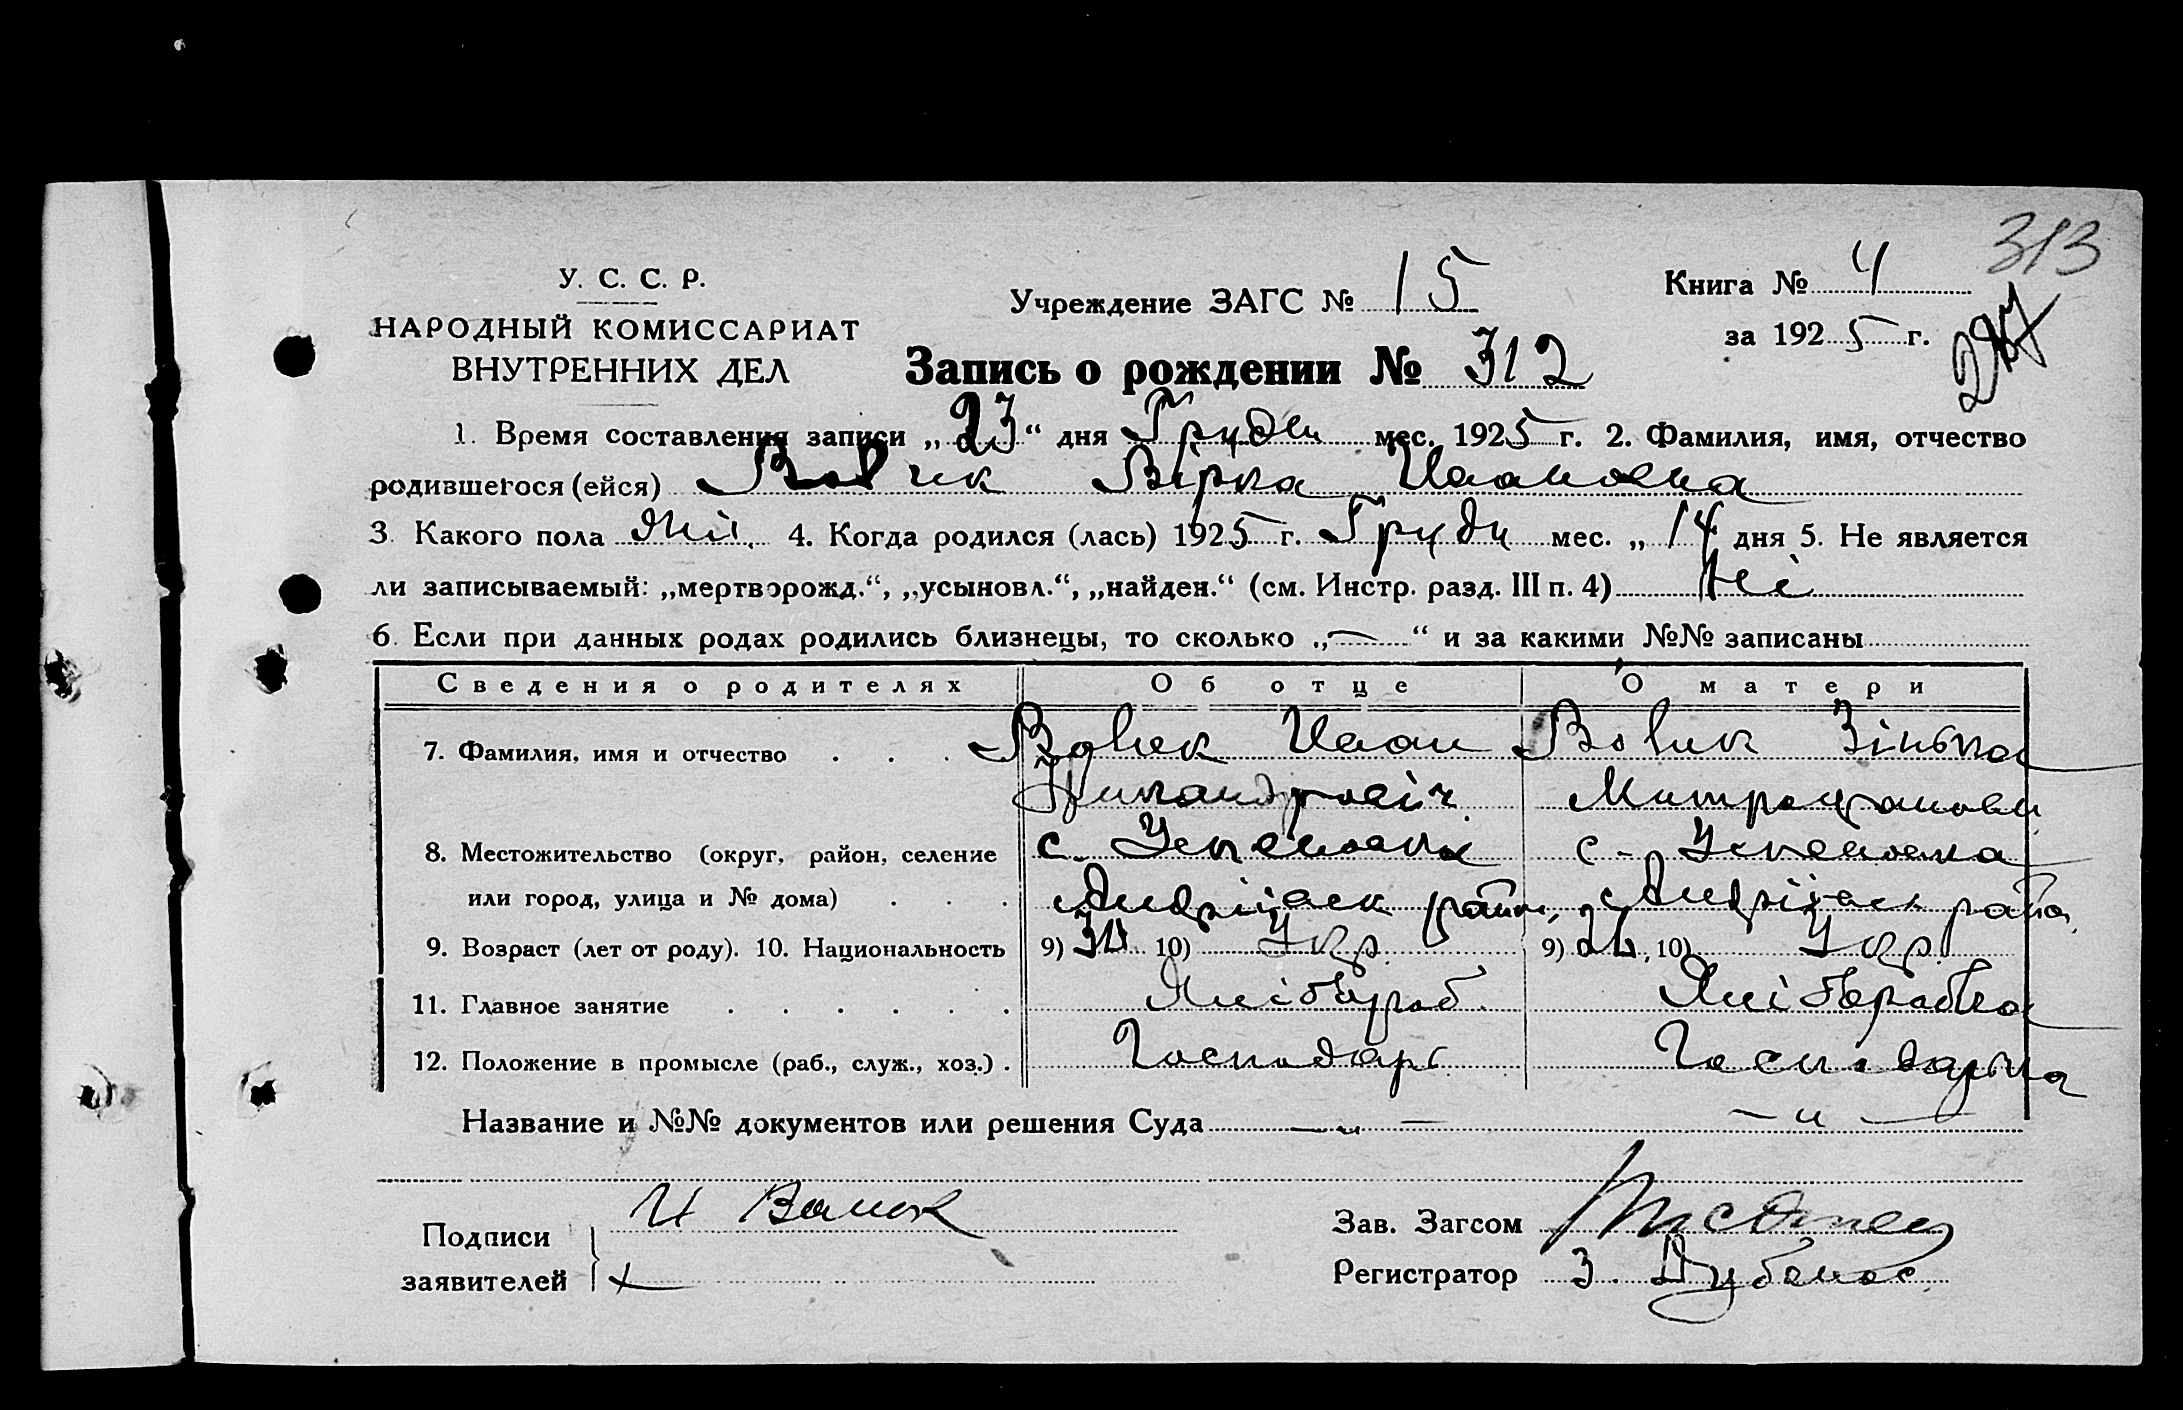 313
У. С. С. Р.
НАРОДНЫЙ КОМИССАРИАТ
ВНУТРЕННИХ ДЕЛ
Учреждение ЗАГС № 15
Книга № 4
за 1925 г.
Запись о рождении № 312
1. Время составления записи „23“ дня Грудн мес. 1925 г. 2. Фамилия, имя, отчество
родившегося (ейся) Вовик Вірка Ивановна
3. Какого пола Жін. 4. Когда родился (лась) 1925 г. Грудн мес. „14 дня 5. Не является
ли записываемый: „мертворожд.“, „усыновл.“, „найден.“ (см. Инстр. разд. III п. 4) Ні
6. Если при данных родах родились близнецы, то сколько „—“ и за какими №№ записаны
Сведения о родителях Об отце О матери
7. Фамилия, имя и отчество . . . Вовик Иван Вовик Зінька
Никандровіч Митрофановн
8. Местожительство (округ, район, селение с. Успеновка с - Успеновка
или город, улица и № дома) . . . Андріївск район, Андріївск район,
9. Возраст (лет от роду). 10. Национальность 9) 10) Укр. 9) 26, 10) Укр.
11. Главное занятие . . . . . . Хліборб. Хліборобка
12. Положение в промысле (раб., служ., хоз.) . Господарь Господарька
Название и №№ документов или решения Суда — „ — — „ —
Подписи
заявителей
И
Зав. Загсом
Регистратор З.